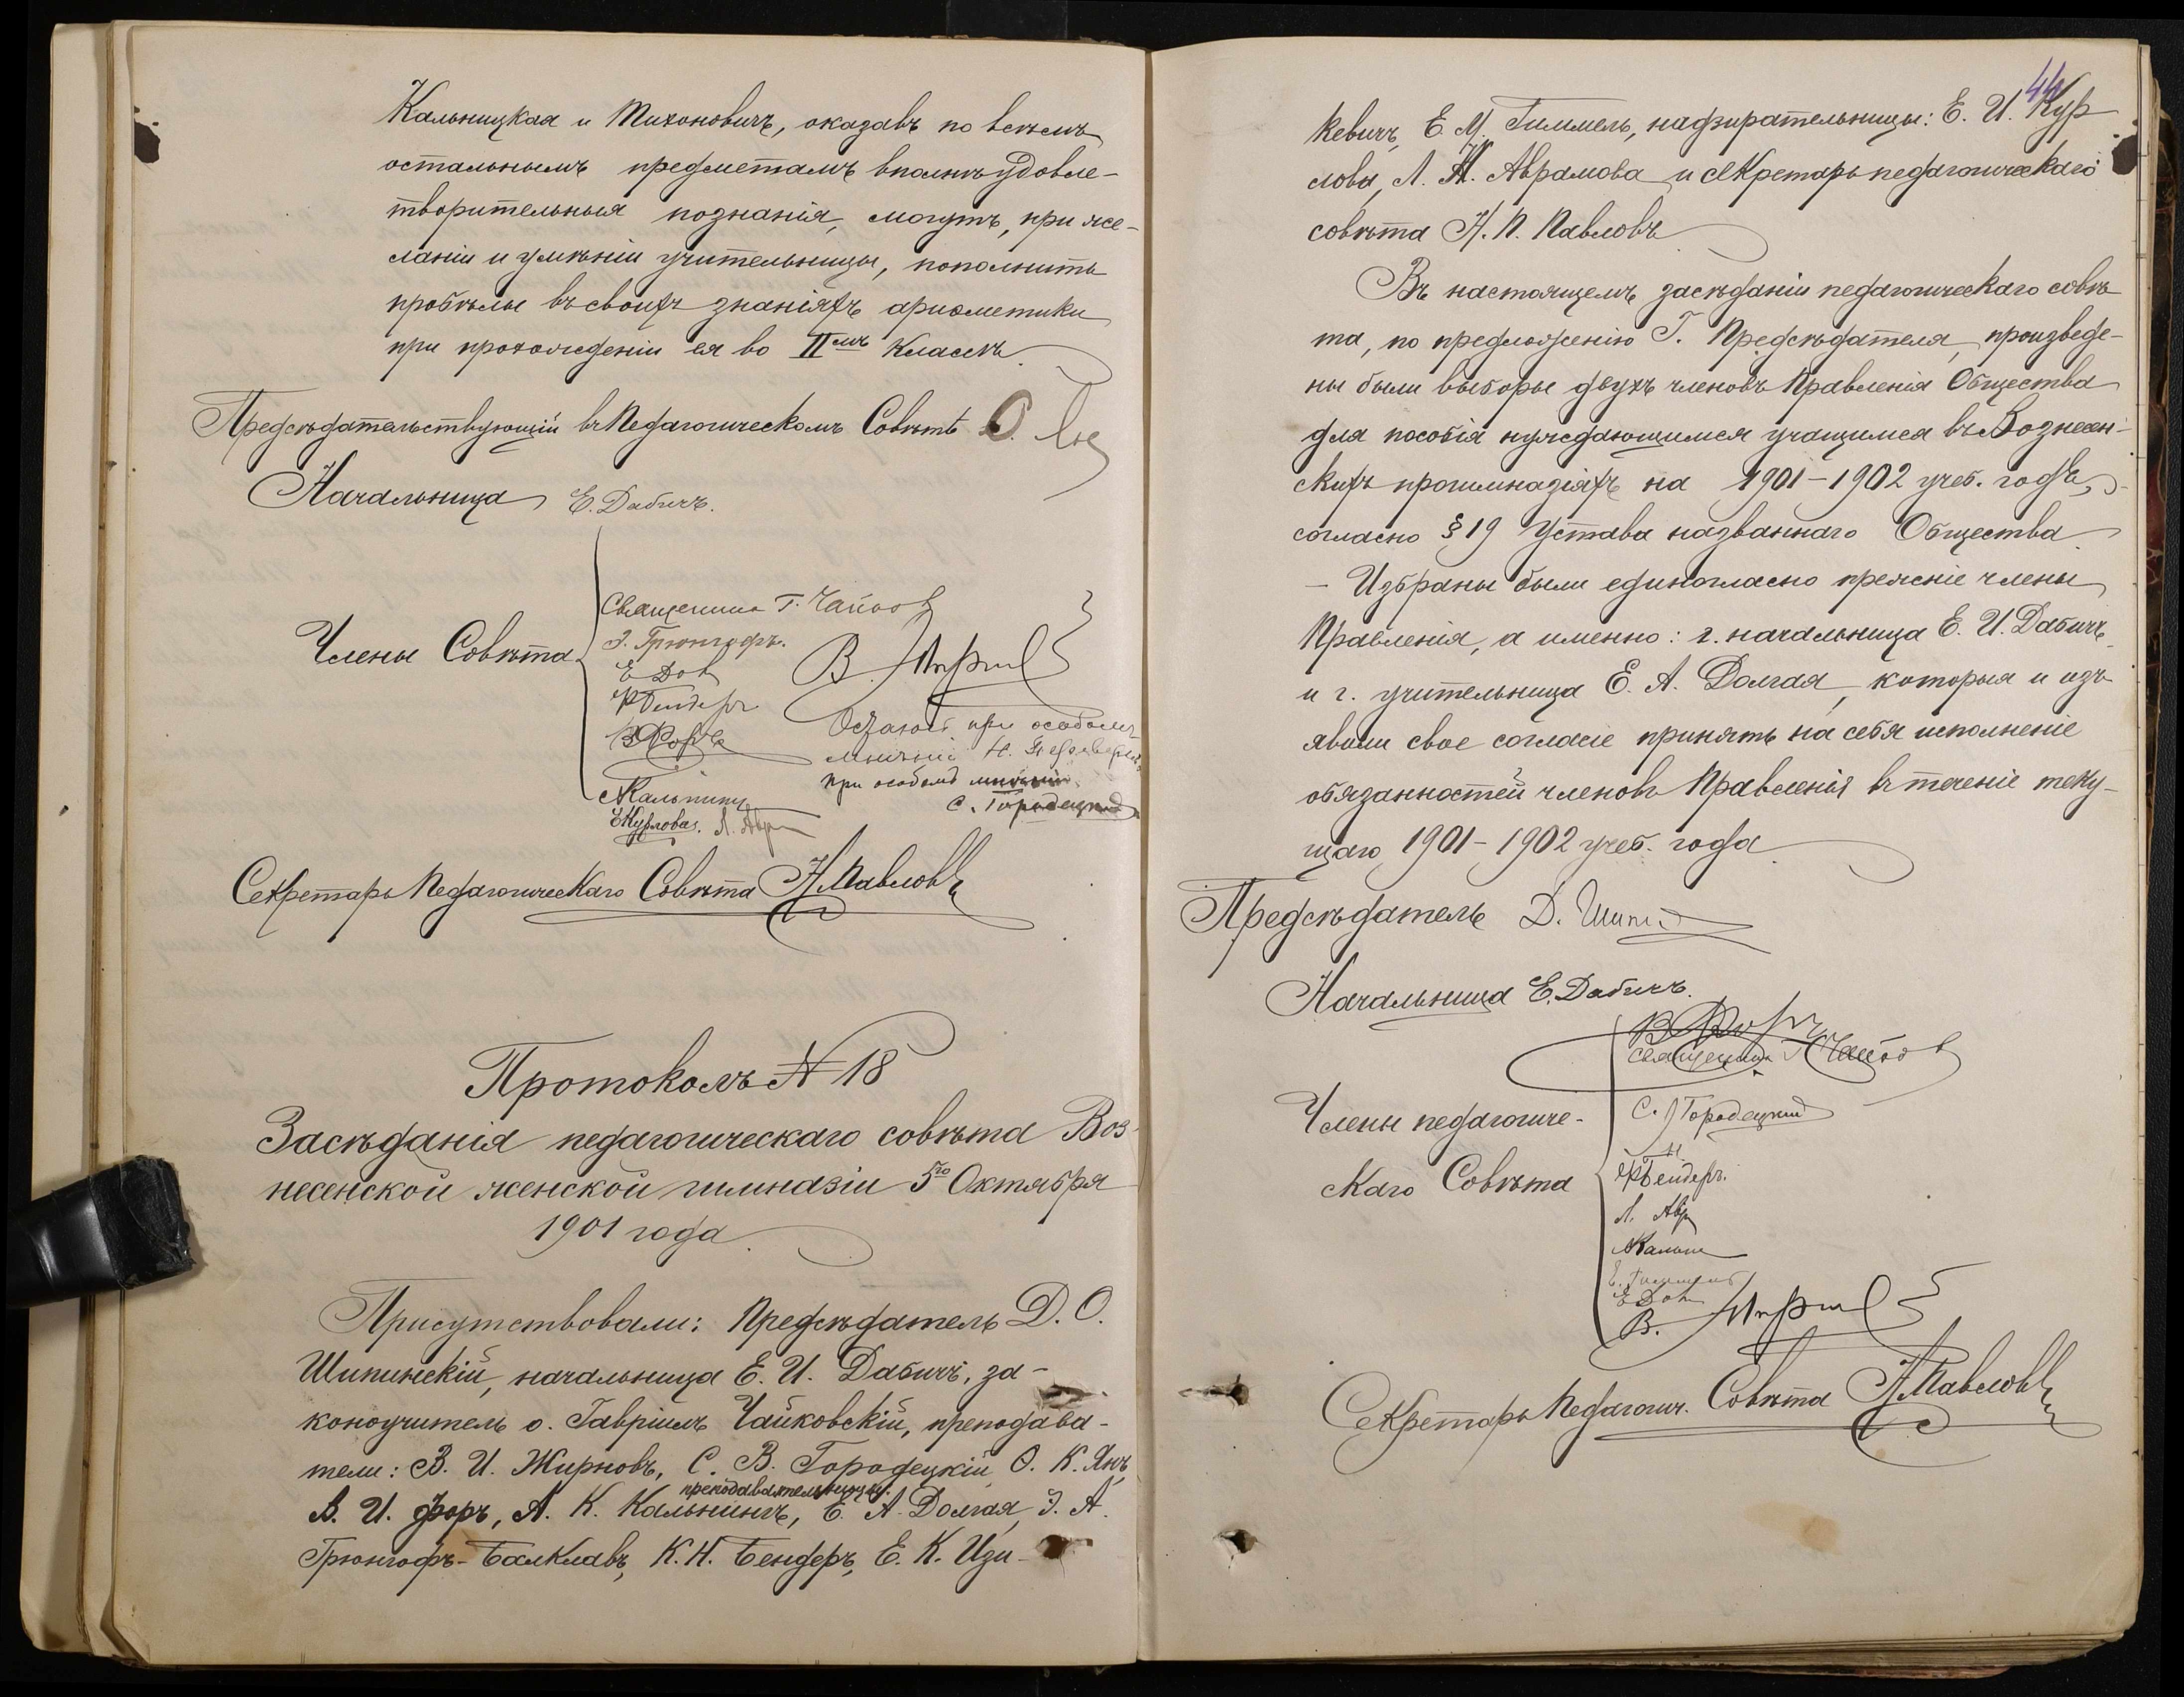 Кальницкая и Тихоновичъ, оказавъ по всѣмъ
остальнымъ предметамъ вполнѣ удовле-
творительныя познанія, могутъ, при же-
ланіи и умѣніи учительницы, пополнить
пробѣлы въ своихъ знаніяхъ ариѳметики
при прохожденіи ея во II омъ классѣ.
Предсѣдательствующій въ Педагогическомъ Совѣтѣ О.
Начальница Е. Дабичъ.
Члены Совѣта
Священникъ Г. Чайков
Э. Грюнгофъ.
Е Дол
В. Жирн
КБендеръ
ВФоръ
Остаюсь при особомъ
мнѣніи Н.
При особомъ мнѣніи
С. Городецкий
АКальнинъ
ЕКурлова. Л. Авр
Секретарь Педагогическаго Совѣта Н Павловъ
Протоколъ № 18
Засѣданія педагогическаго совѣта Воз-
несенской женской гимназіи 5го Октября
1901 года.
Присутствовали: Предсѣдатель Д. О.
Шипинскій, начальница Е. И. Дабичъ, за-
коноучитель о. Гавріилъ Чайковскій, преподава-
тели: В. И. Жирновъ, С. В. Городецкій, О. К. Янъ,
преподавательницы:
В. И. Форъ, А. К. Кальнингъ, Е. А. Долгая, Э. А.
Грюнгофъ-Балклавъ, К. Н. Бендеръ, Е. К. Изи-
44
кевичъ, Е. М. Гиммель, надзирательницы: Е. И. Кур
лова, Л. Н. Аврамова и секретарь педагогическаго
совѣта Н. П. Павловъ
Въ настоящемъ засѣданіи педагогическаго совѣ
та, по предложенію Г. Предсѣдателя, произведе-
ны были выборы двухъ членовъ Правленія Общества
для пособія нуждающимся учащимся въ Вознесен-
скихъ прогимназіяхъ на 1901-1902 учеб. годъ,
согласно § 19 Устава названнаго Общества.
- Избраны были единогласно прежніе члены
Правленія, а именно: г. начальница Е. И. Дабичъ
и г. учительница Е. А. Долгая, которыя и изъ-
явили свое согласіе принять на себя исполненіе
обязанностей членовъ Правленія въ теченіе теку-
щаго 1901-1902 учеб. года.
Предсѣдатель Д. Шипи
Начальница Е. Дабичъ.
ВФоръ
Священникъ Г Чайков
Члены педагогиче-
С. Городецкий
скаго Совѣта
КБендеръ.
Л. Авр
АКальни
Е. Гиммель
Е Дол
В. Жирн
Секретарь Педагогич. Совѣта Н Павловъ